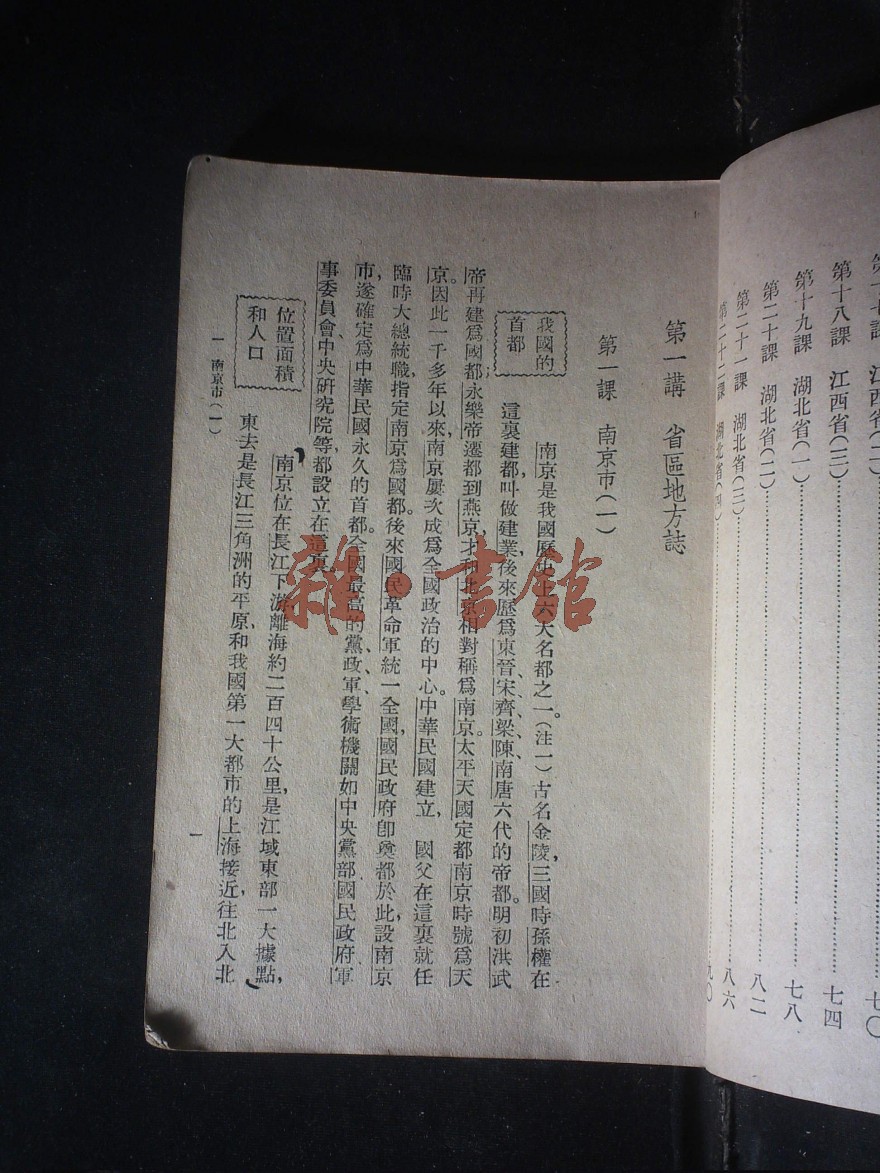 第十八課　江西省(三)……七四
第十九課　湖北省(一)……七八
第二十課　湖北省(二)……八二
第二十一課　湖北省(三)……八六
第二十二課　湖北省(四)……九〇
第一講　省區地方誌
第一課　南京市(一)
我國的
首都
南京是我國歷史上六大名都之一。(注一)古名金陵，三國時孫權在
這裏建都，叫做建業，後來歷爲東晉、宋、齊、梁、陳、南唐六代的帝都。明初洪武
帝再建爲國都；永樂帝遷都到燕京，才和北京相對稱爲南京。太平天國定都南京時號爲天
京。因此一千多年以來，南京屢次成爲全國政治的中心。中華民國建立，　國父在這裏就任
臨時大總統職，指定南京爲國都。後來國民革命軍統一全國，國民政府卽奠都於此，設南京
市，遂確定爲中華民國永久的首都。全國最高的黨、政、軍、學術機關如中央黨部、國民政府、軍
事委員會、中央研究院等，都設立在這裏。
位置面積
和人口
南京位在長江下游，離海約二百四十公里，是江域東部一大據點，
東去是長江三角洲的平原，和我國第一大都市的上海接近，往北入北
一　南京市(一)
一
雜·書館